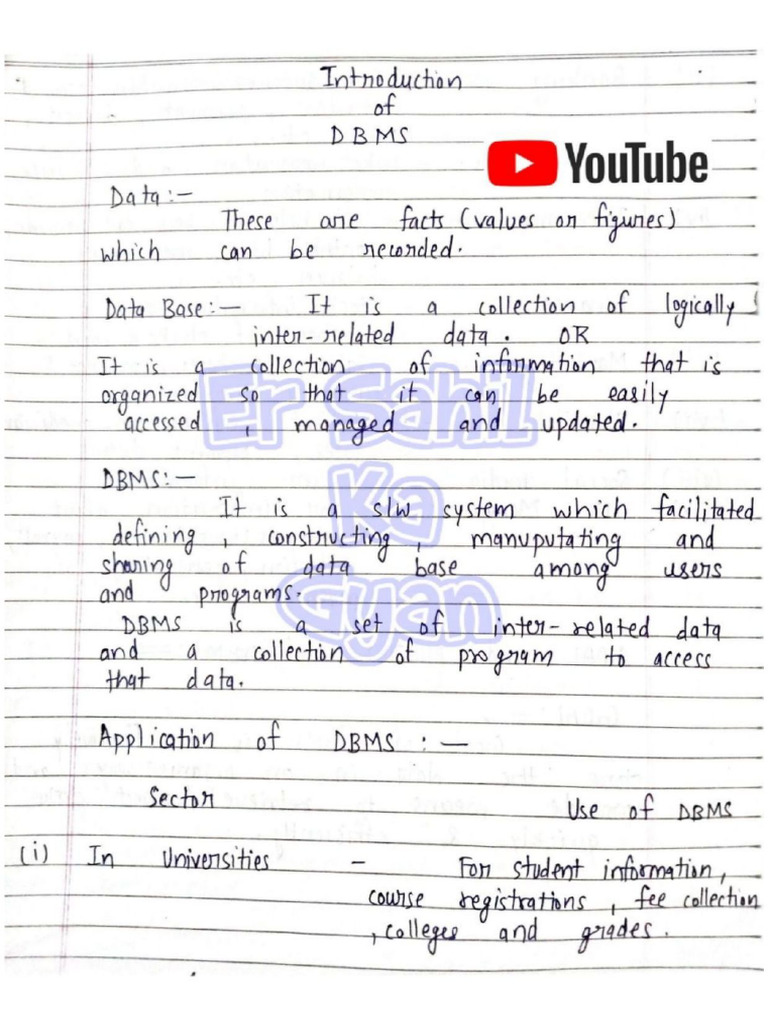 Introduction
of
DBMS
YouTube
Data:-
These are facts (values or figures)
which can be recorded.
Data Base:- It is a collection of logically
inter-related data. OR
It is a collection of information that is
organized so that it can be easily
accessed, managed and updated.
Er Sahil
Ka
Gyan
DBMS:-
It is a s/w system which facilitated
defining, constructing, manuputating and
sharing of data base among users
and programs.
DBMS is a set of inter-related data
and a collection of program to access
that data.
Application of DBMS :-
Sector Use of DBMS
(i) In Universities - For student information,
course registrations, fee collection
, colleges and grades.